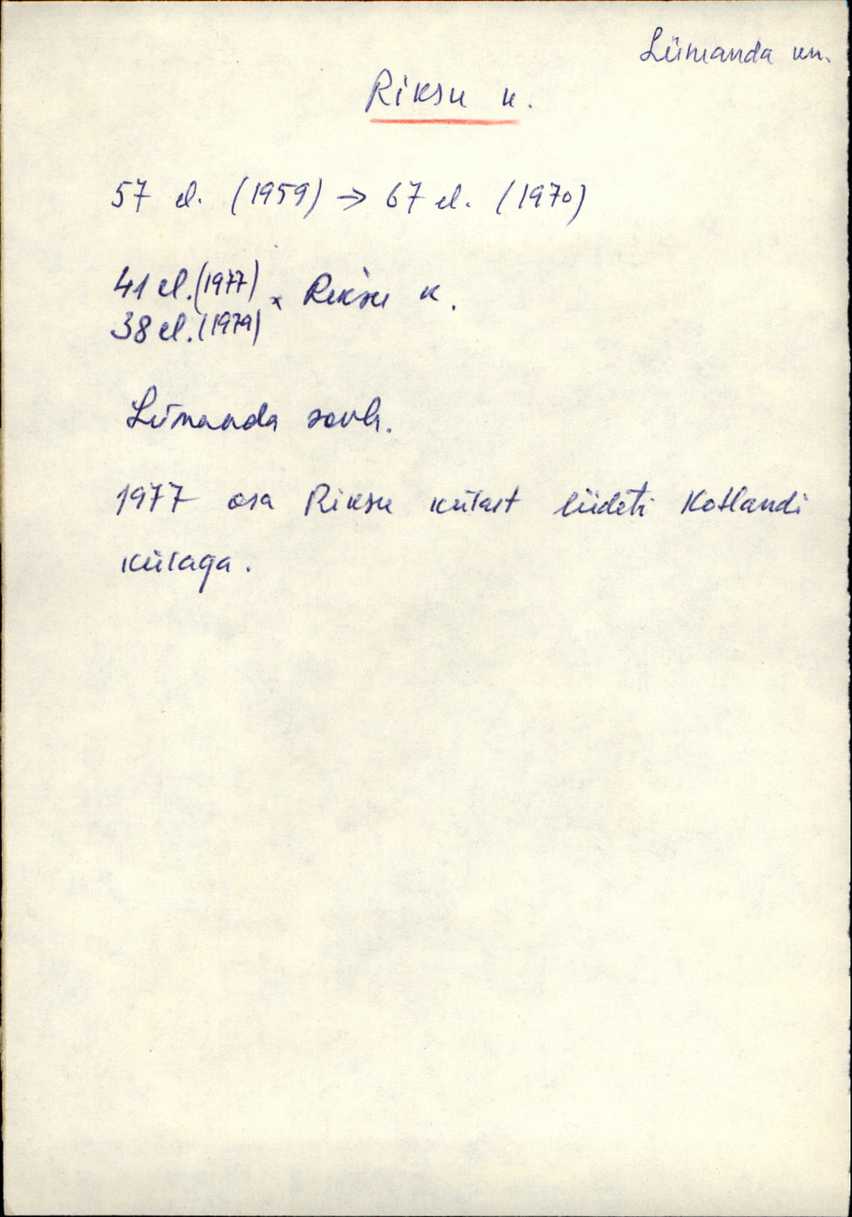 Lümanda kn.
Riksu k.
57 el. (1959) → 67 el. (1970)
41 el. (1977) x Riksu k.
38 el. (1979)
Lümanda sovh.
1977 osa Riksu külast liideti Kotlandi
külaga.